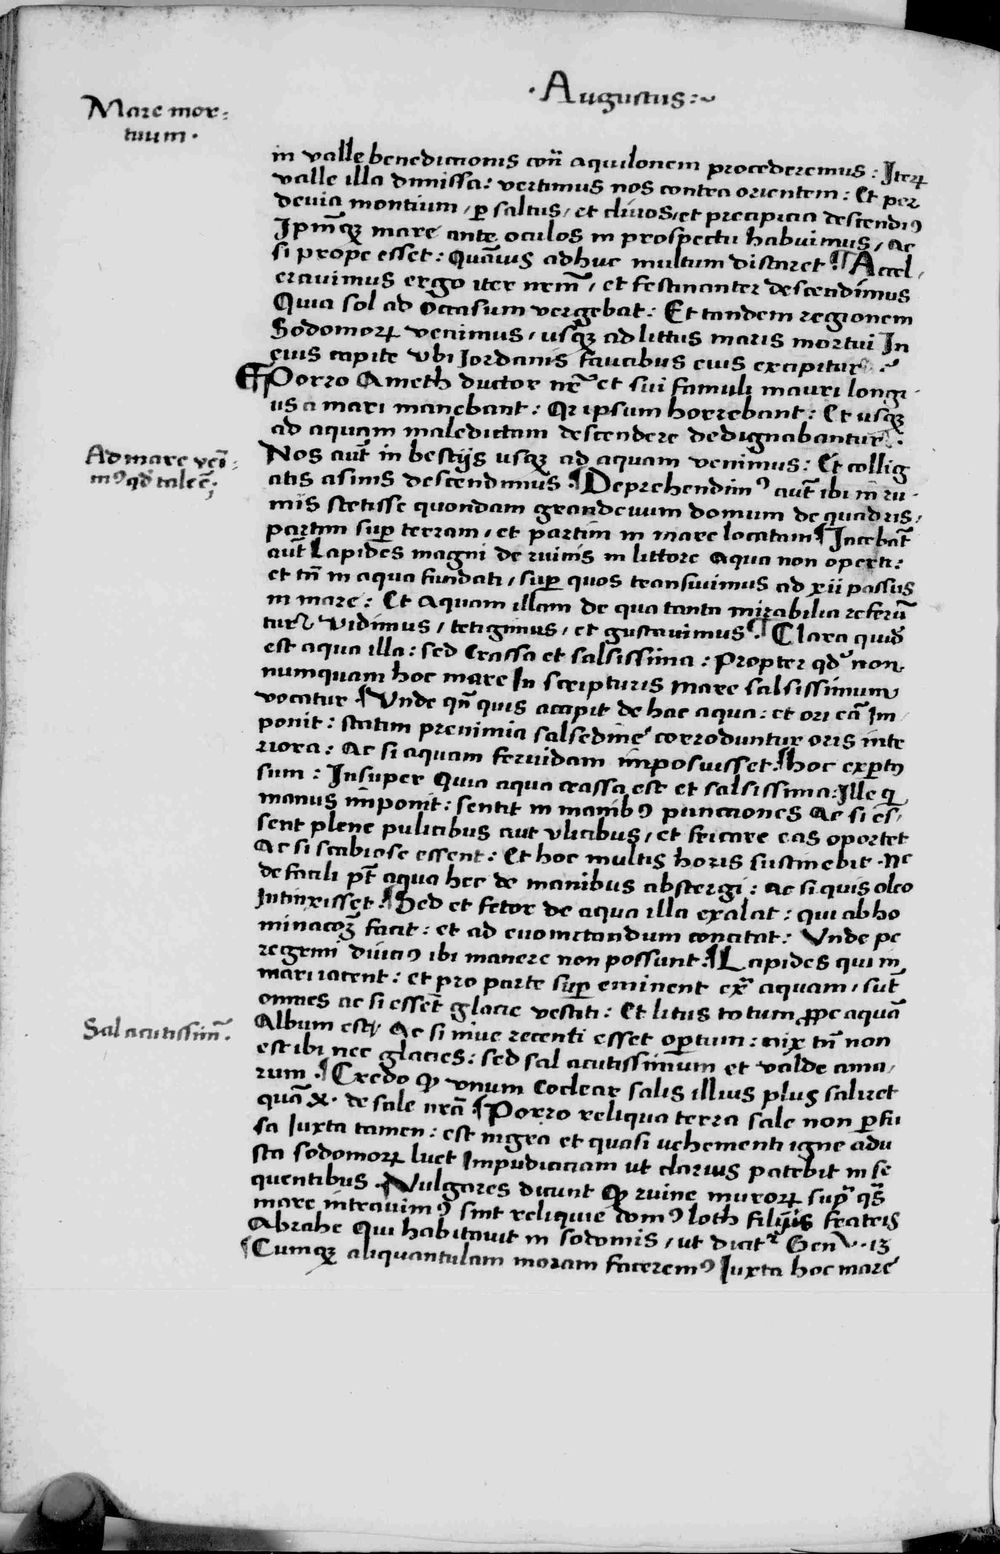 · Augustus :~
Mare mor-
tuum ·
in valle benedictionis cont̃ aquilonem procederemus : Iterꝝ
valle illa dimissa : vertimus nos contra orientem : Et per
devia montium / ꝑ saltus / et clivos / et precipicia descendimꝰ
Ipm̃qꝫ mare ante oculos in prospectu habuimus / ac
si prope esset : Quãvis adhuc multum distaret ¶ Accel /
eravimus ergo iter nrm̃ / et festinanter descendimus
Quia sol ad occasum vergebat : Et tandem regionem
Sodomorꝝ venimus / usqꝫ ad littus maris mortui In
eius capite vbi Jordanis faucibus eius excipitur
¶ Porro Ameth ductor nr̃ et sui famuli mauri longi
us a mari manebant : Qr ipsum horrebant : Et usqꝫ
ad aquam maledictam descendere dedignabantur
Ad mare vei᷈-
mꝰ qd̃ tale ẽ ;
Nos aut̃ in bestijs usqꝫ ad aquam venimus : Et collig
atis asinis descendimus · ¶ Deprehendimꝰ aut̃ ibi in ru ·
inis stetisse quondam grandevum domum de quadris /
partim suꝑ terram / et partim in mare locatam ¶ Jacebãt
aut̃ Lapides magni de ruinis in littore aqua non operti :
et tñ in aqua fundati / suꝑ quos transivimus ad xii passus
in mare : Et Aquam illam de qua tanta mirabilia referũ
tur Vidimus / tetigimus / et gustavimus · ¶ Clara quid̃
est aqua illa : sed Crassa et salsissima : Propter qd̃ non
numquam hoc mare In scripturis mare salsissimum
vocatur · ¶ Vnde qñ quis accipit de hac aqua : et ori eã Im
ponit : statim prenimia salsedine corroduntur oris inte
riora : Ac si aquam fervidam imposuisset : ¶ hoc exꝑtꝰ
sum : Insuper Quia aqua crassa est et salsissima : Ille q̃
manus imponit : sentit in manibꝰ punctiones Ac si es /
sent plene pulicibus aut vlicibus / et fricare eas oportet
Ac si scabiose essent : Et hoc multis horis sustinebit · Nc
de facili pt̃ aqua hec de manibus abstergi : ac si quis oleo
Intinxisset : ¶ Sed et fetor de aqua illa exalat : qui abho
minacoꝫ facit : et ad evomitandum concitat : Vnde pe
regrini diuciꝰ ibi manere non possunt · ¶ Lapides qui in
mari iacent : et pro parte suꝑ eminent ex̃ aquam / sut̃
omnes ac si essẽt glacie vestiti : Et litus totum ꝓpe aquã
Sal acutissim̃ ·
Album est / Ac si nive recenti esset oꝑtum : nix tñ non
est ibi nec glacies : sed sal acutissimum et valde ama /
rum · ¶ Credo ꝙ vnum coclear salis illius plus saliret
quã x · de sale nrã ¶ Porro reliqua terra sale non ꝑfu
sa Juxta tamen : est nigra et quasi vehementi igne adu
sta sodomorꝝ luet Impudiciciam ut clarius patebit in se
quentibus · ¶ Vulgares dicunt ꝙ ruine murorꝝ supr̃ q̃s
mare intravimꝰ sint reliquie domꝰ loth filijis fratris
Abrahe Qui habitavit in sodomis / ut dicit̃ Gen · 13
¶ Cumqꝫ aliquantulam moram faceremꝰ Juxta hoc mare